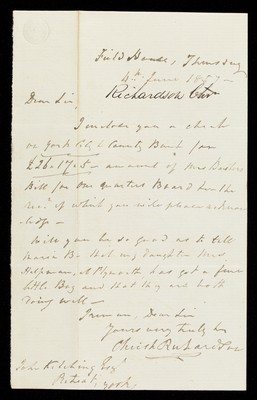 Field House, Thursday
4th June 1857 –
Richardson Chr
Dear Sir,
I inclose you a check
on York City & County Bank for
£26.17.5 – amount of Mrs
Bill for one quarters Board &c the
rect. of which you will please acknow
ledge –
Will you be so good as to tell
Maria B. that my daughter Mrs.
at Plymouth has got a fine
little Boy and that they are both
doing well –
I remain, Dear Sir
Yours very truly
Christr Richardson
John Kitching Esqr
Retreat, York